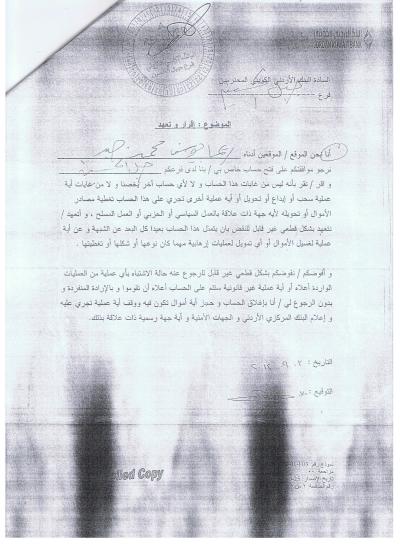 البنك الأردني الكويتي
JORDAN KUWAIT BANK
السادة البنك الأردني الكويتي المحترمين
فرع
الموضوع : إقرار و تعهد
أنا / نحن الموقع / الموقعين أدناه
نرجو موافقتكم على فتح حساب خاص بي / بنا لدى فرعكم
و اقر / نقر بأنه ليس من غايات هذا الحساب و لا لأي حساب آخر يخصنا و لا من غايات أية
عملية سحب أو إيداع أو تحويل أو أية عملية أخرى تجري على هذا الحساب تغطية مصادر
الأموال أو تحويله لأية جهة ذات علاقة بالعمل السياسي أو الحزبي أو العمل المسلح ، و أتعهد /
نتعهد بشكل قطعي غير قابل للنقض بأن يتمثل هذا الحساب بعيدا كل البعد عن الشبهة و عن أية
عملية لغسيل الأموال أو أي تمويل لعمليات إرهابية مهما كان نوعها أو شكلها أو تغطيتها .
و أفوضكم / نفوضكم بشكل قطعي غير قابل للرجوع عنه حالة الاشتباه بأي عملية من العمليات
الواردة أعلاه أو أية عملية غير قانونية ستتم على الحساب أعلاه أن تقوموا و بالإرادة المنفردة و
بدون الرجوع لي / أنا بإغلاق الحساب و حجز أية أموال تكون فيه ووقف أية عملية تجري عليه
و إعلام البنك المركزي الأردني و الجهات الأمنية و أية جهة رسمية ذات علاقة بذلك.
التاريخ :
التوقيع :
lled Copy
نموذج رقم